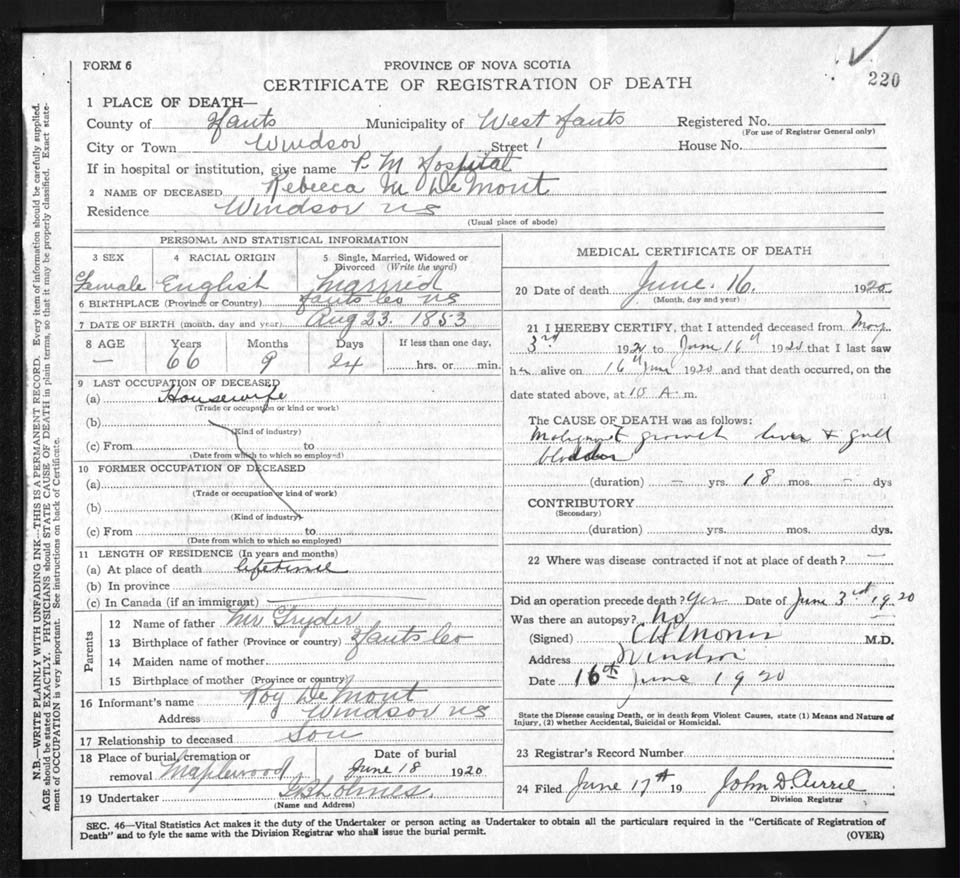 FORM 6
PROVINCE OF NOVA SCOTIA
220
CERTIFICATE OF REGISTRATION OF DEATH
1 PLACE OF DEATH—
County of Hants Municipality of West Hants Registered No.
(For use of Registrar General only)
City or Town Windsor Street House No.
If in hospital or institution, give name P. M Hospital
2 NAME OF DECEASED Rebecca M DeMont
Residence Windsor NS
(Usual place of abode)
PERSONAL AND STATISTICAL INFORMATION
3 SEX 4 RACIAL ORIGIN 5 Single, Married, Widowed or Divorced (Write the word)
Female English Married
6 BIRTHPLACE (Province or Country) Hants Co NS
7 DATE OF BIRTH (month, day and year) Aug 23. 1853
8 AGE Years Months Days If less than one day,
— 66 9 24 hrs. or min.
9 LAST OCCUPATION OF DECEASED
(a) Housewife
(Trade or occupation or kind or work)
(b)
(Kind of industry)
(c) From to
(Date from which to which so employed)
10 FORMER OCCUPATION OF DECEASED
(a)
(Trade or occupation or kind of work)
(b)
(Kind of industry)
(c) From to
(Date from which to which so employed)
11 LENGTH OF RESIDENCE (In years and months)
(a) At place of death lifetime
(b) In province
(c) In Canada (if an immigrant)
Parents
12 Name of father Mr
13 Birthplace of father (Province or country) Hants Co
14 Maiden name of mother
15 Birthplace of mother (Province or country)
16 Informant's name Roy DeMont
Address Windsor NS
17 Relationship to deceased Son
18 Place of burial, cremation or removal Maplewood
Date of burial
June 18 1920
19 Undertaker Holmes.
(Name and Address)
MEDICAL CERTIFICATE OF DEATH
20 Date of death June. 16. 1920
(Month, day and year)
21 I HEREBY CERTIFY, that I attended deceased from May
3rd 1920 to June 16th 1920 that I last saw
her alive on 16th June 1920 and that death occurred, on the
date stated above, at 10 A. m.
The CAUSE OF DEATH was as follows:
Malignant growth liver & gall
bladder
(duration) — yrs. 18 mos. — dys
CONTRIBUTORY
(Secondary)
(duration) yrs. mos. dys.
22 Where was disease contracted if not at place of death? —
Did an operation precede death? Yes Date of June 3rd 1920
Was there an autopsy? No
(Signed) M.D.
Address Windsor
Date 16th June 1920
State the Disease causing Death, or in death from Violent Causes, state (1) Means and Nature of
Injury, (2) whether Accidental, Suicidal or Homicidal.
23 Registrar's Record Number
24 Filed June 17th 19 John D. Currie
Division Registrar
SEC. 46—Vital Statistics Act makes it the duty of the Undertaker or person acting as Undertaker to obtain all the particulars required in the "Certificate of Registration of
Death" and to fyle the same with the Division Registrar who shall issue the burial permit.
(OVER)
N.B.—WRITE PLAINLY WITH UNFADING INK—THIS IS A PERMANENT RECORD. Every item of information should be carefully supplied.
AGE should be stated EXACTLY. PHYSICIANS should STATE CAUSE OF DEATH in plain terms, so that it may be properly classified. Exact state-
ment of OCCUPATION is very important. See instructions on back of Certificate.